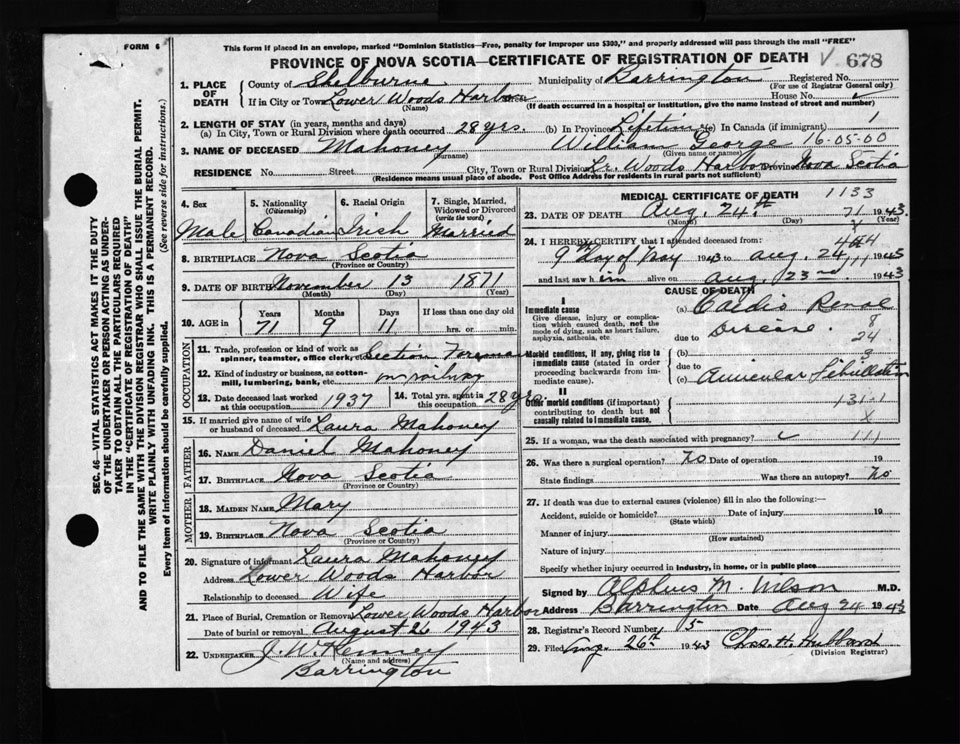 FORM 6
This form if placed in an envelope, marked "Dominion Statistics—Free, penalty for improper use $300," and properly addressed will pass through the mail "FREE"
PROVINCE OF NOVA SCOTIA—CERTIFICATE OF REGISTRATION OF DEATH
678
1. PLACE OF DEATH
County of Shelburne Municipality of Barrington Registered No.
(For use of Registrar General only)
If in City or Town Lower Woods Harbor House No.
(Name) (If death occurred in a hospital or institution, give the name instead of street and number)
2. LENGTH OF STAY (in years, months and days)
(a) In City, Town or Rural Division where death occurred 28 yrs. (b) In Province Lifetime (c) In Canada (if immigrant) 1
3. NAME OF DECEASED Mahoney William George 16-05-60
(Surname) (Given name or names)
RESIDENCE No. Street City, Town or Rural Division Lr. Woods Harbor Nova Scotia
(Residence means usual place of abode. Post Office Address for residents in rural parts not sufficient)
4. Sex
Male
5. Nationality
(Citizenship)
Canadian
6. Racial Origin
Irish
7. Single, Married, Widowed or Divorced
(write the word)
Married
8. BIRTHPLACE Nova Scotia
(Province or Country)
9. DATE OF BIRTH November 13 1871
(Month) (Day) (Year)
10. AGE in Years Months Days If less than one day old
71 9 11 hrs. or min.
OCCUPATION
11. Trade, profession or kind of work as spinner, teamster, office clerk, etc. Section Foreman
12. Kind of industry or business, as cotton-mill, lumbering, bank, etc. on railway
13. Date deceased last worked at this occupation 1937
14. Total yrs. spent in this occupation 28 yrs.
15. If married give name of wife or husband of deceased Laura Mahoney
FATHER
16. NAME Daniel Mahoney
17. BIRTHPLACE Nova Scotia
(Province or Country)
MOTHER
18. MAIDEN NAME Mary
19. BIRTHPLACE Nova Scotia
(Province or Country)
20. Signature of informant Laura Mahoney
Address Lower Woods Harbor
Relationship to deceased Wife
21. Place of Burial, Cremation or Removal Lower Woods Harbor
Date of burial or removal August 26 1943
22. UNDERTAKER J. W. Kenney
(Name and address)
Barrington
MEDICAL CERTIFICATE OF DEATH 1133
23. DATE OF DEATH Aug. 24th 71 1943
(Month) (Day) (Year)
24. I HEREBY CERTIFY that I attended deceased from:
9th Day of May 1943 to Aug. 24 1943
and last saw him alive on Aug 23rd 1943
CAUSE OF DEATH
I
Immediate cause
Give disease, injury or complication which caused death, not the mode of dying, such as heart failure, asphyxia, asthenia, etc.
(a) Cardio Renal Disease.
8
due to 24
Morbid conditions, if any, giving rise to immediate cause (stated in order proceeding backwards from immediate cause).
(b)
due to
(c) Auricular Fibrillation
II
Other morbid conditions (if important) contributing to death but not causally related to immediate cause.
131-1
X
25. If a woman, was the death associated with pregnancy? 111
26. Was there a surgical operation? No Date of operation 19
State findings Was there an autopsy? No
27. If death was due to external causes (violence) fill in also the following:—
Accident, suicide or homicide? Date of injury 19
(State which)
Manner of injury
(How sustained)
Nature of injury
Specify whether injury occurred in industry, in home, or in public place
Signed by Alphus M. Wilson M.D.
Address Barrington Date Aug 24 194
28. Registrar's Record Number 15
29. Filed Aug. 26th 1943 Chas. H. Hubbard
(Division Registrar)
SEC. 46—VITAL STATISTICS ACT MAKES IT THE DUTY
OF THE UNDERTAKER OR PERSON ACTING AS UNDER-
TAKER TO OBTAIN ALL THE PARTICULARS REQUIRED
IN THE "CERTIFICATE OF REGISTRATION OF DEATH"
AND TO FILE THE SAME WITH THE DIVISION REGISTRAR WHO SHALL ISSUE THE BURIAL PERMIT.
WRITE PLAINLY WITH UNFADING INK. THIS IS A PERMANENT RECORD.
Every item of information should be carefully supplied. (See reverse side for instructions.)